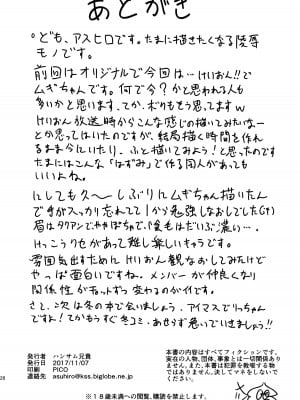 あとがき
ども、アスヒロです。たまに描きたくなる陵辱
モノです。
前回はオリジナルで今回は…けいおん!!で
ムギちゃんです。何で今?かと思われる人も
多いかと思います、てか、ボクもそう思ってますw
けいおん放送時からこんな感じの描いてみたいなー
とか思ってはいたのですが、結局描く時間を作れ
るまま今にいたり、ふと描いてみよう!と思ったのです
たまにはこんな「はずみ」で作る同人があっても
いいよね。
にしても久〜しぶりにムギちゃん描いたん
ですがスっかり忘れてて1から勉強しなおしでした(汗)
眉はタクアンでややぽちゃで、髪もはだいぶ濃い…
けっこうクセがあって難し奥しいキャラです。
雰囲気出すためにけいおん観なおしてみたけど
やっぱ面白いですね。メンバーが仲良くなり
関係性がちょっずつ変わるのが行です。
さて、次は冬の本で会いましょう、アイマスでりっちゃん
ですよ!てかもうすぐ冬コミ、あせらず急いでいきましょう!!
発行者 ハンサム兄貴
発行日 2017/11/07
印刷 PICO
連絡先 asuhiro@kss.biglobe.ne.jp
本書の内容はすべてフィクションです。
実在の人物、団体、事象とは一切関係あり
ません。また、本書は犯罪を教唆する物
ではありません。決してマネをしないで
ください。
※18歳未満への閲覧、購読を禁止します。
28